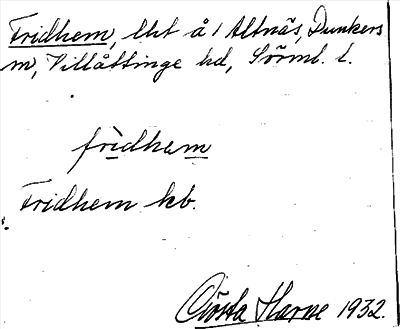 Fridhem, lht å 1 Altnäs, Dunkers
sn, Villåttinge hd, Sörml. l.
frìdhem
Fridhem kb.
Gösta Harne 1932.